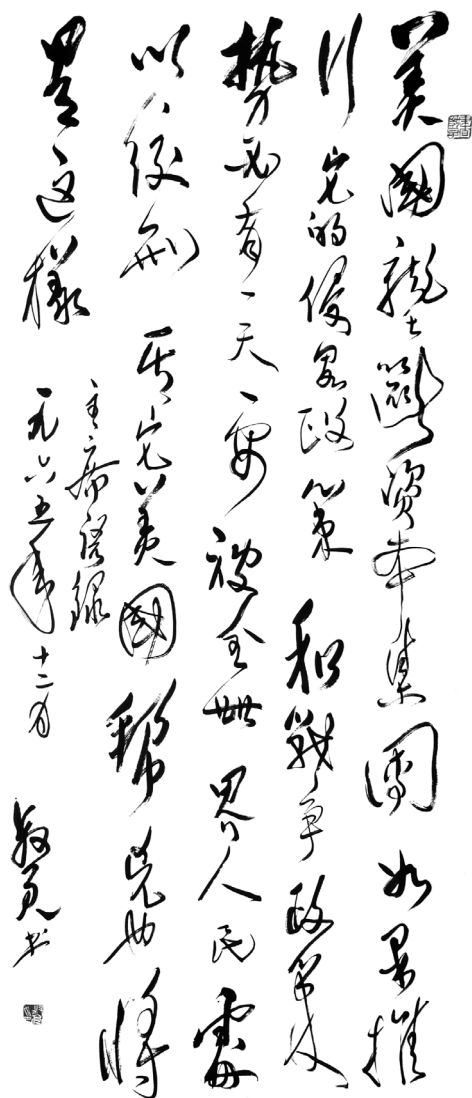 美國壟斷资本集團如果推
行它的侵略政策和戰争政策
勢必有一天要被全世界人民處
以绞刑其它美國帮兇也將
是这樣
主席语録
一九六五年十二月
书